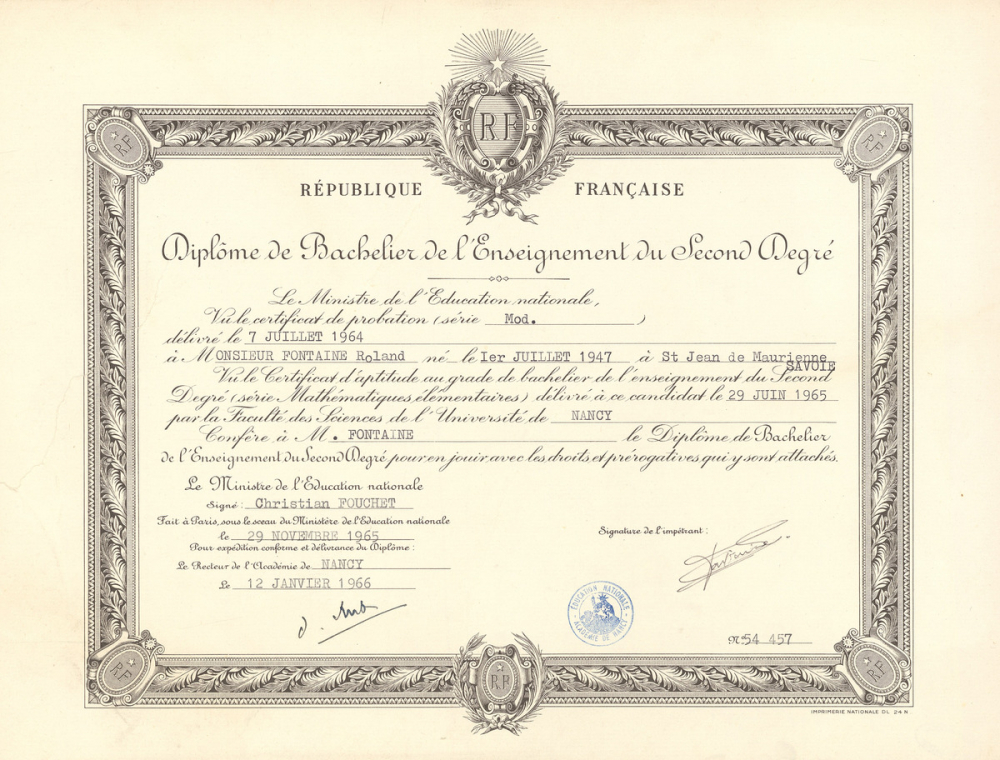 RF
RF
RF
RÉPUBLIQUE FRANÇAISE
Diplôme de Bachelier de l'Enseignement du Second Degré
Le Ministre de l'Education nationale,
Vu le certificat de probation (série Mod. )
délivré le 7 JUILLET 1964
à MONSIEUR FONTAINE Roland né le Ier JUILLET 1947 à St Jean de Maurienne
SAVOIE
Vu le Certificat d'aptitude au grade de bachelier de l'enseignement du Second
Degré (série Mathématiques élémentaires) délivré à ce candidat le 29 JUIN 1965
par la Faculté des Sciences de l'Université de NANCY
Confère à M. FONTAINE le Diplôme de Bachelier
de l'Enseignement du Second Degré pour en jouir avec les droits et prérogatives qui y sont attachés.
Le Ministre de l'Education nationale
Signé: Christian FOUCHET
Fait à Paris, sous le sceau du Ministère de l'Education nationale
le 29 NOVEMBRE 1965
Pour expédition conforme et délivrance du Diplôme:
Le Recteur de l'Académie de NANCY
Le 12 JANVIER 1966
Signature de l'impétrant:
ÉDUCATION NATIONALE
ACADÉMIE DE NANCY
N° 54 457
RF
RF
RF
IMPRIMERIE NATIONALE DL. 24 N.